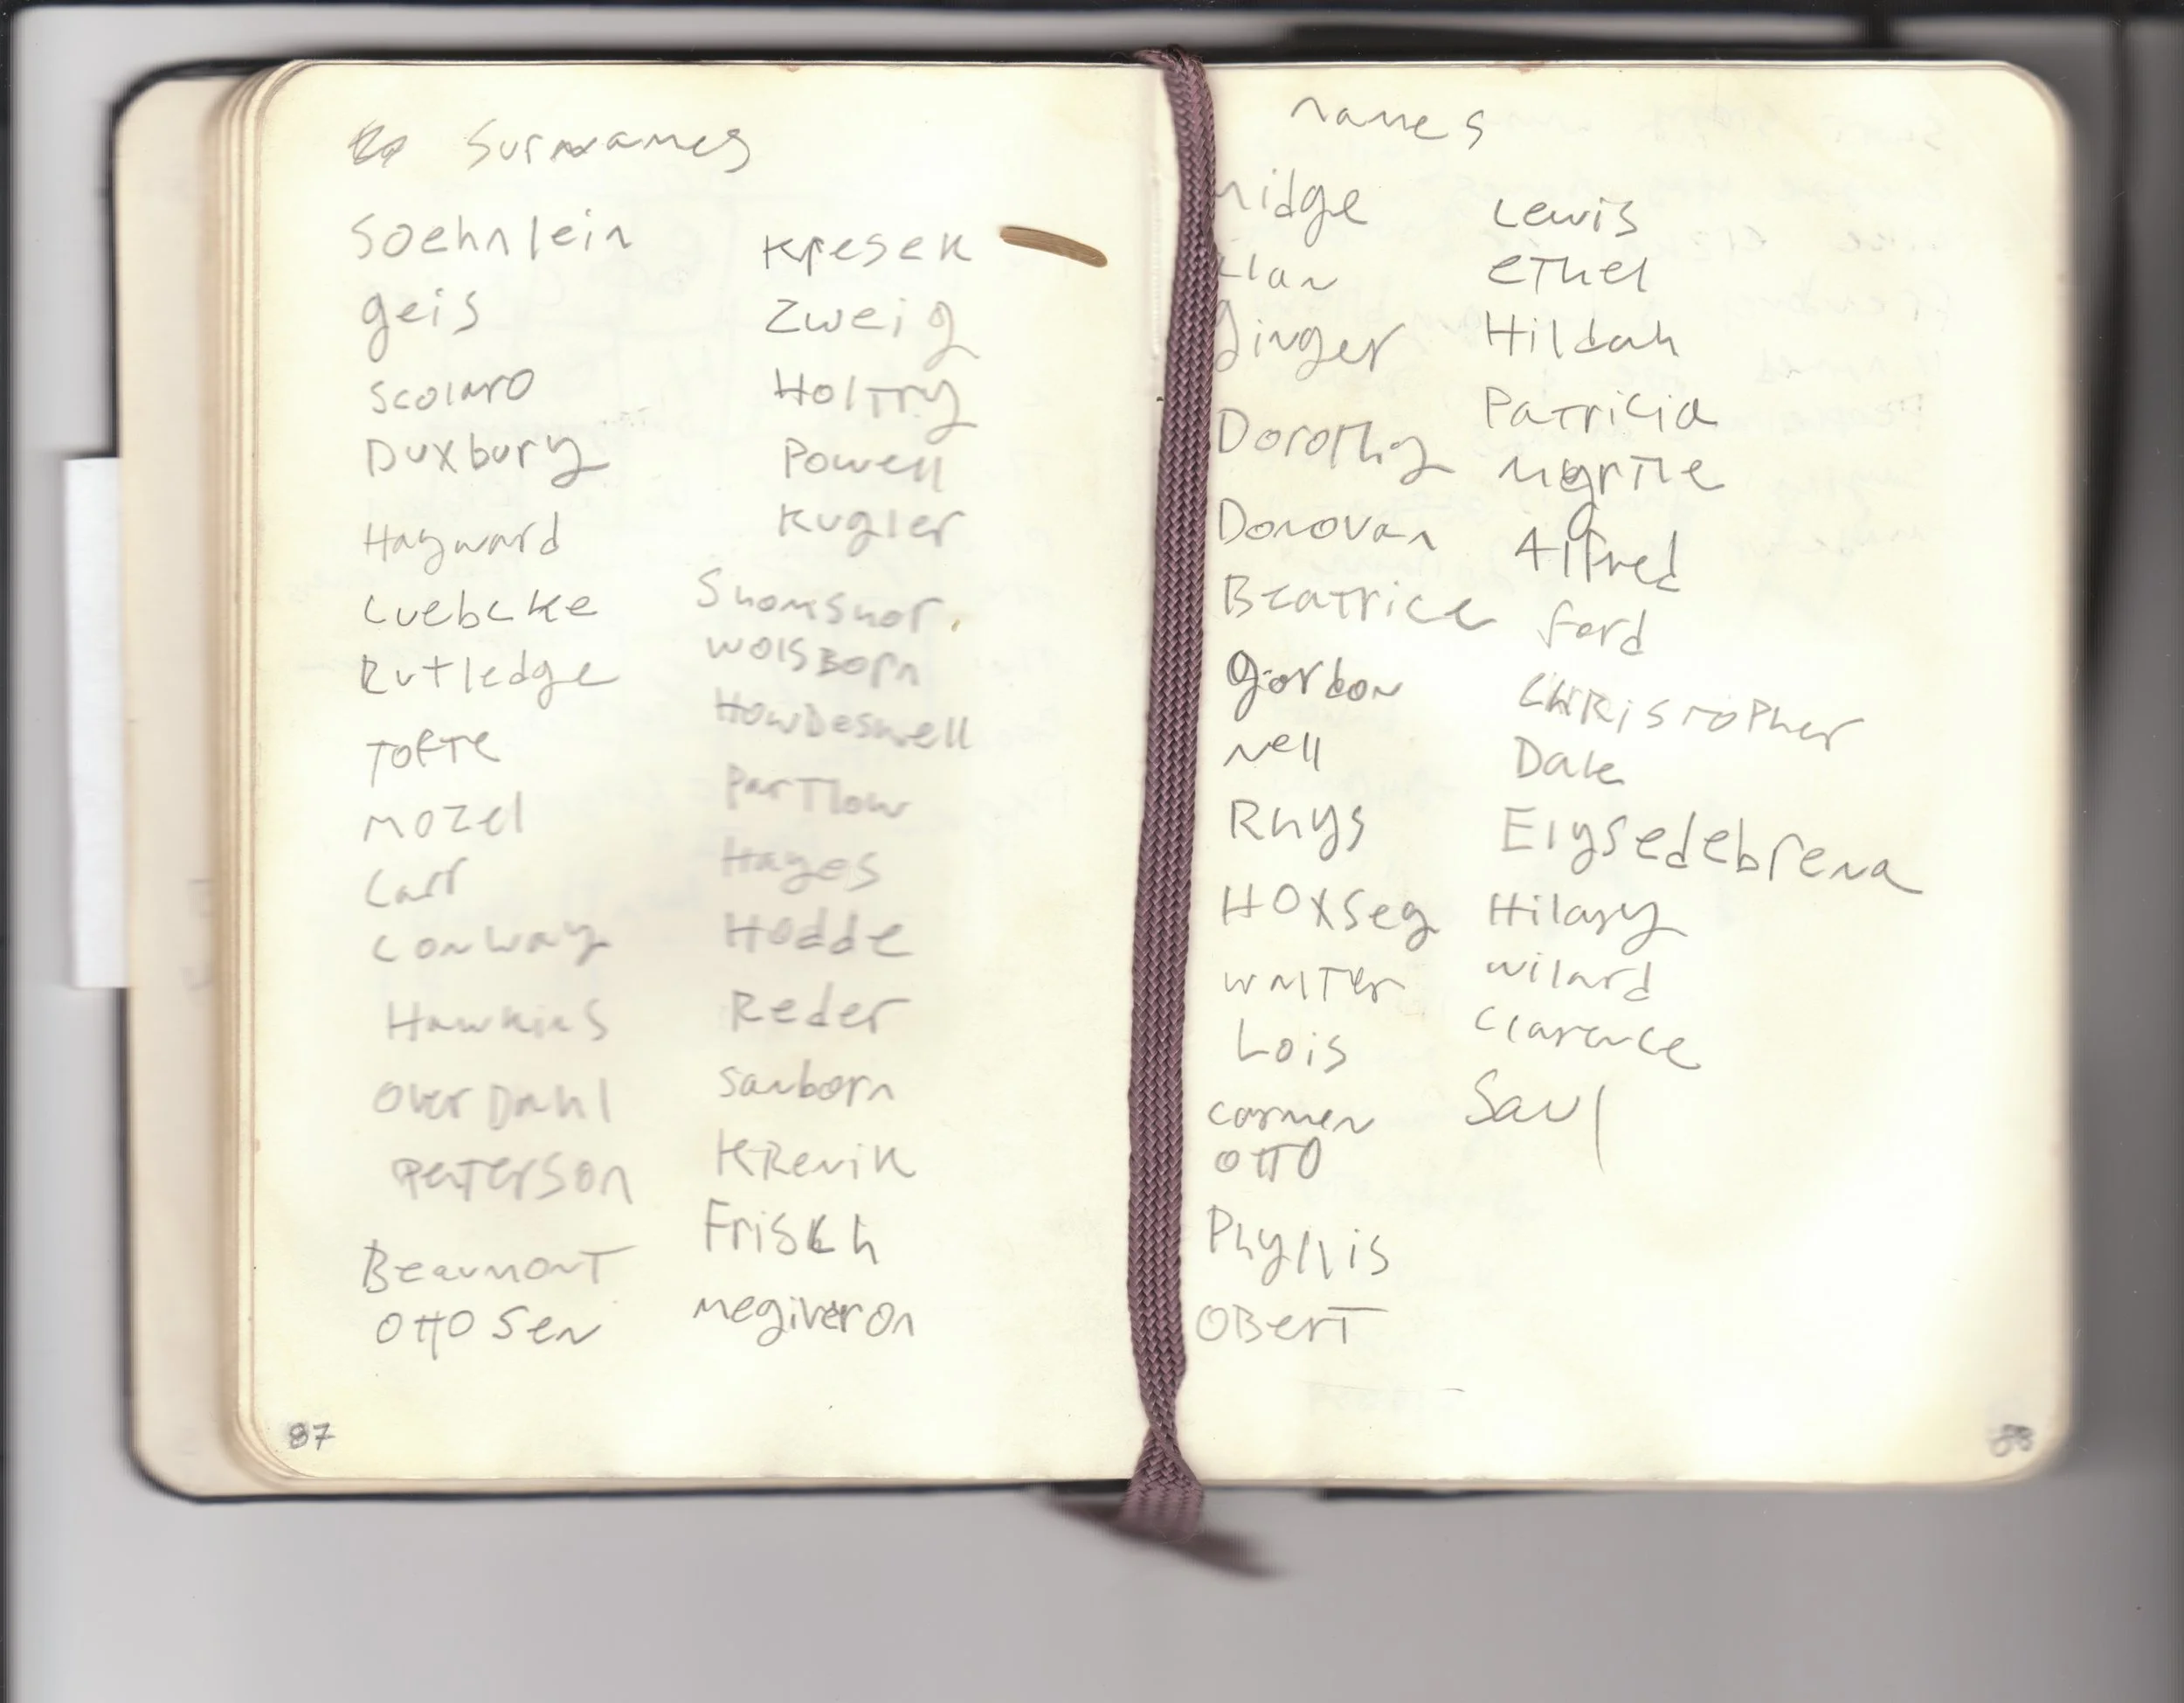 Surnames
Soehnlein
geis
scolaro
Duxbury
Hayward
Luebcke
Rutledge
TOFTE
Mozel
Carr
Conway
Hawkins
OverDahl
Peterson
Beaumont
Ottosen
Kresek
Zweig
Holtry
Powell
Kugler
Shomshor
WolsBorn
HowDeshell
Partlow
Hayes
Hodde
Reder
Sanborn
KRevik
Frisch
Megiveron
87
names
Midge
Alan
ginger
Dorothy
Donovan
Beatrice
gordon
Nell
Rhys
Hoxsey
Walter
Lois
Carmen
Otto
Phyllis
OBerT
Lewis
Ethel
Hildah
Patricia
Myrtle
Alfred
ford
ChRistopher
Dale
Elysedebrena
Hilary
Wilard
Clarence
Saul
88